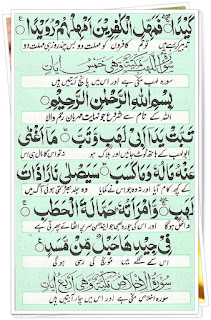 كَيْدًا فَمَهِّلِ الْكٰفِرِيْنَ اَمْهِلْهُمْ رُوَيْدًا
تدبیر کر رہے ہیں تو تم کافروں کو مہلت دو بس چند روز ہی مہلت دو
سُوْرَةُ لَهَبٍ مَكِّيَّةٌ وَّهِيَ خَمْسُ اٰيَاتٍ
سورہ لہب مکی ہے اور اس میں پانچ آیتیں ہیں
بِسْمِ اللّٰهِ الرَّحْمٰنِ الرَّحِيْمِ
اللہ کے نام سے شروع جو نہایت مہربان رحم والا
تَبَّتْ يَدَا اَبِيْ لَهَبٍ وَّتَبَّ مَا اَغْنٰى
ابولہب کے ہاتھ ٹوٹ جائیں اور ہلاک ہو نہ تو اس کا مال ہی اس
عَنْهُ مَالُهٗ وَمَا كَسَبَ سَيَصْلٰى نَارًا ذَاتَ
کے کچھ کام آیا اور نہ وہ جو اس نے کمایا وہ جلد بھڑکتی ہوئی آگ میں
لَهَبٍ وَّامْرَاَتُهٗ حَمَّالَةَ الْحَطَبِ
داخل ہوگا اور اس کی جورو بھی جو ایندھن سر پر اٹھائے پھرتی ہے
فِيْ جِيْدِهَا حَبْلٌ مِّنْ مَّسَدٍ
اس کے گلے میں مونج کی رسی ہوگی
سُوْرَةُ اِخْلَاصٍ مَكِّيَّةٌ وَّهِيَ اَرْبَعُ اٰيَاتٍ
سورہ اخلاص مکی ہے اور اس میں چار آیتیں ہیں